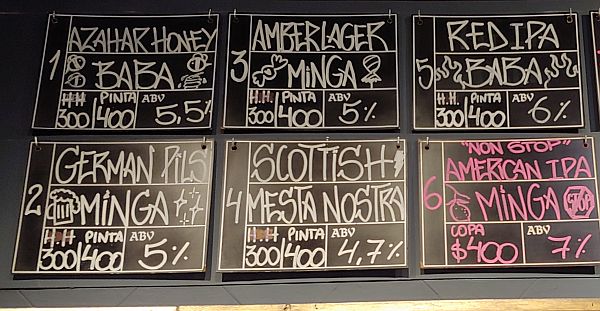 1
AZAHAR HONEY
BABA
H.H PINTA ABV
300/400 5,5%
3
AMBER LAGER
MINGA
H.H. PINTA ABV
300/400 5%
5
RED IPA
BABA
H.H. PINTA ABV
300/400 6%
2
GERMAN PILS
MINGA
H.H PINTA ABV
300/400 5%
4
SCOTTISH
MESTA NOSTRA
H.H PINTA ABV
300/400 4,7%
6
"NON STOP"
AMERICAN IPA
MINGA
STOP
COPA ABV
$400 7%